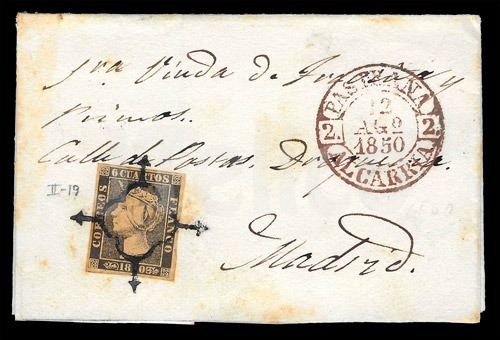 Sra Viuda de y
Primos.
Calle de Postas. Droguería.
Madrid.
PASTRANA
12
AGO
1850
2 2
ALCARRIA
II-19
6 CUARTOS
CORREOS
FRANCO
1850